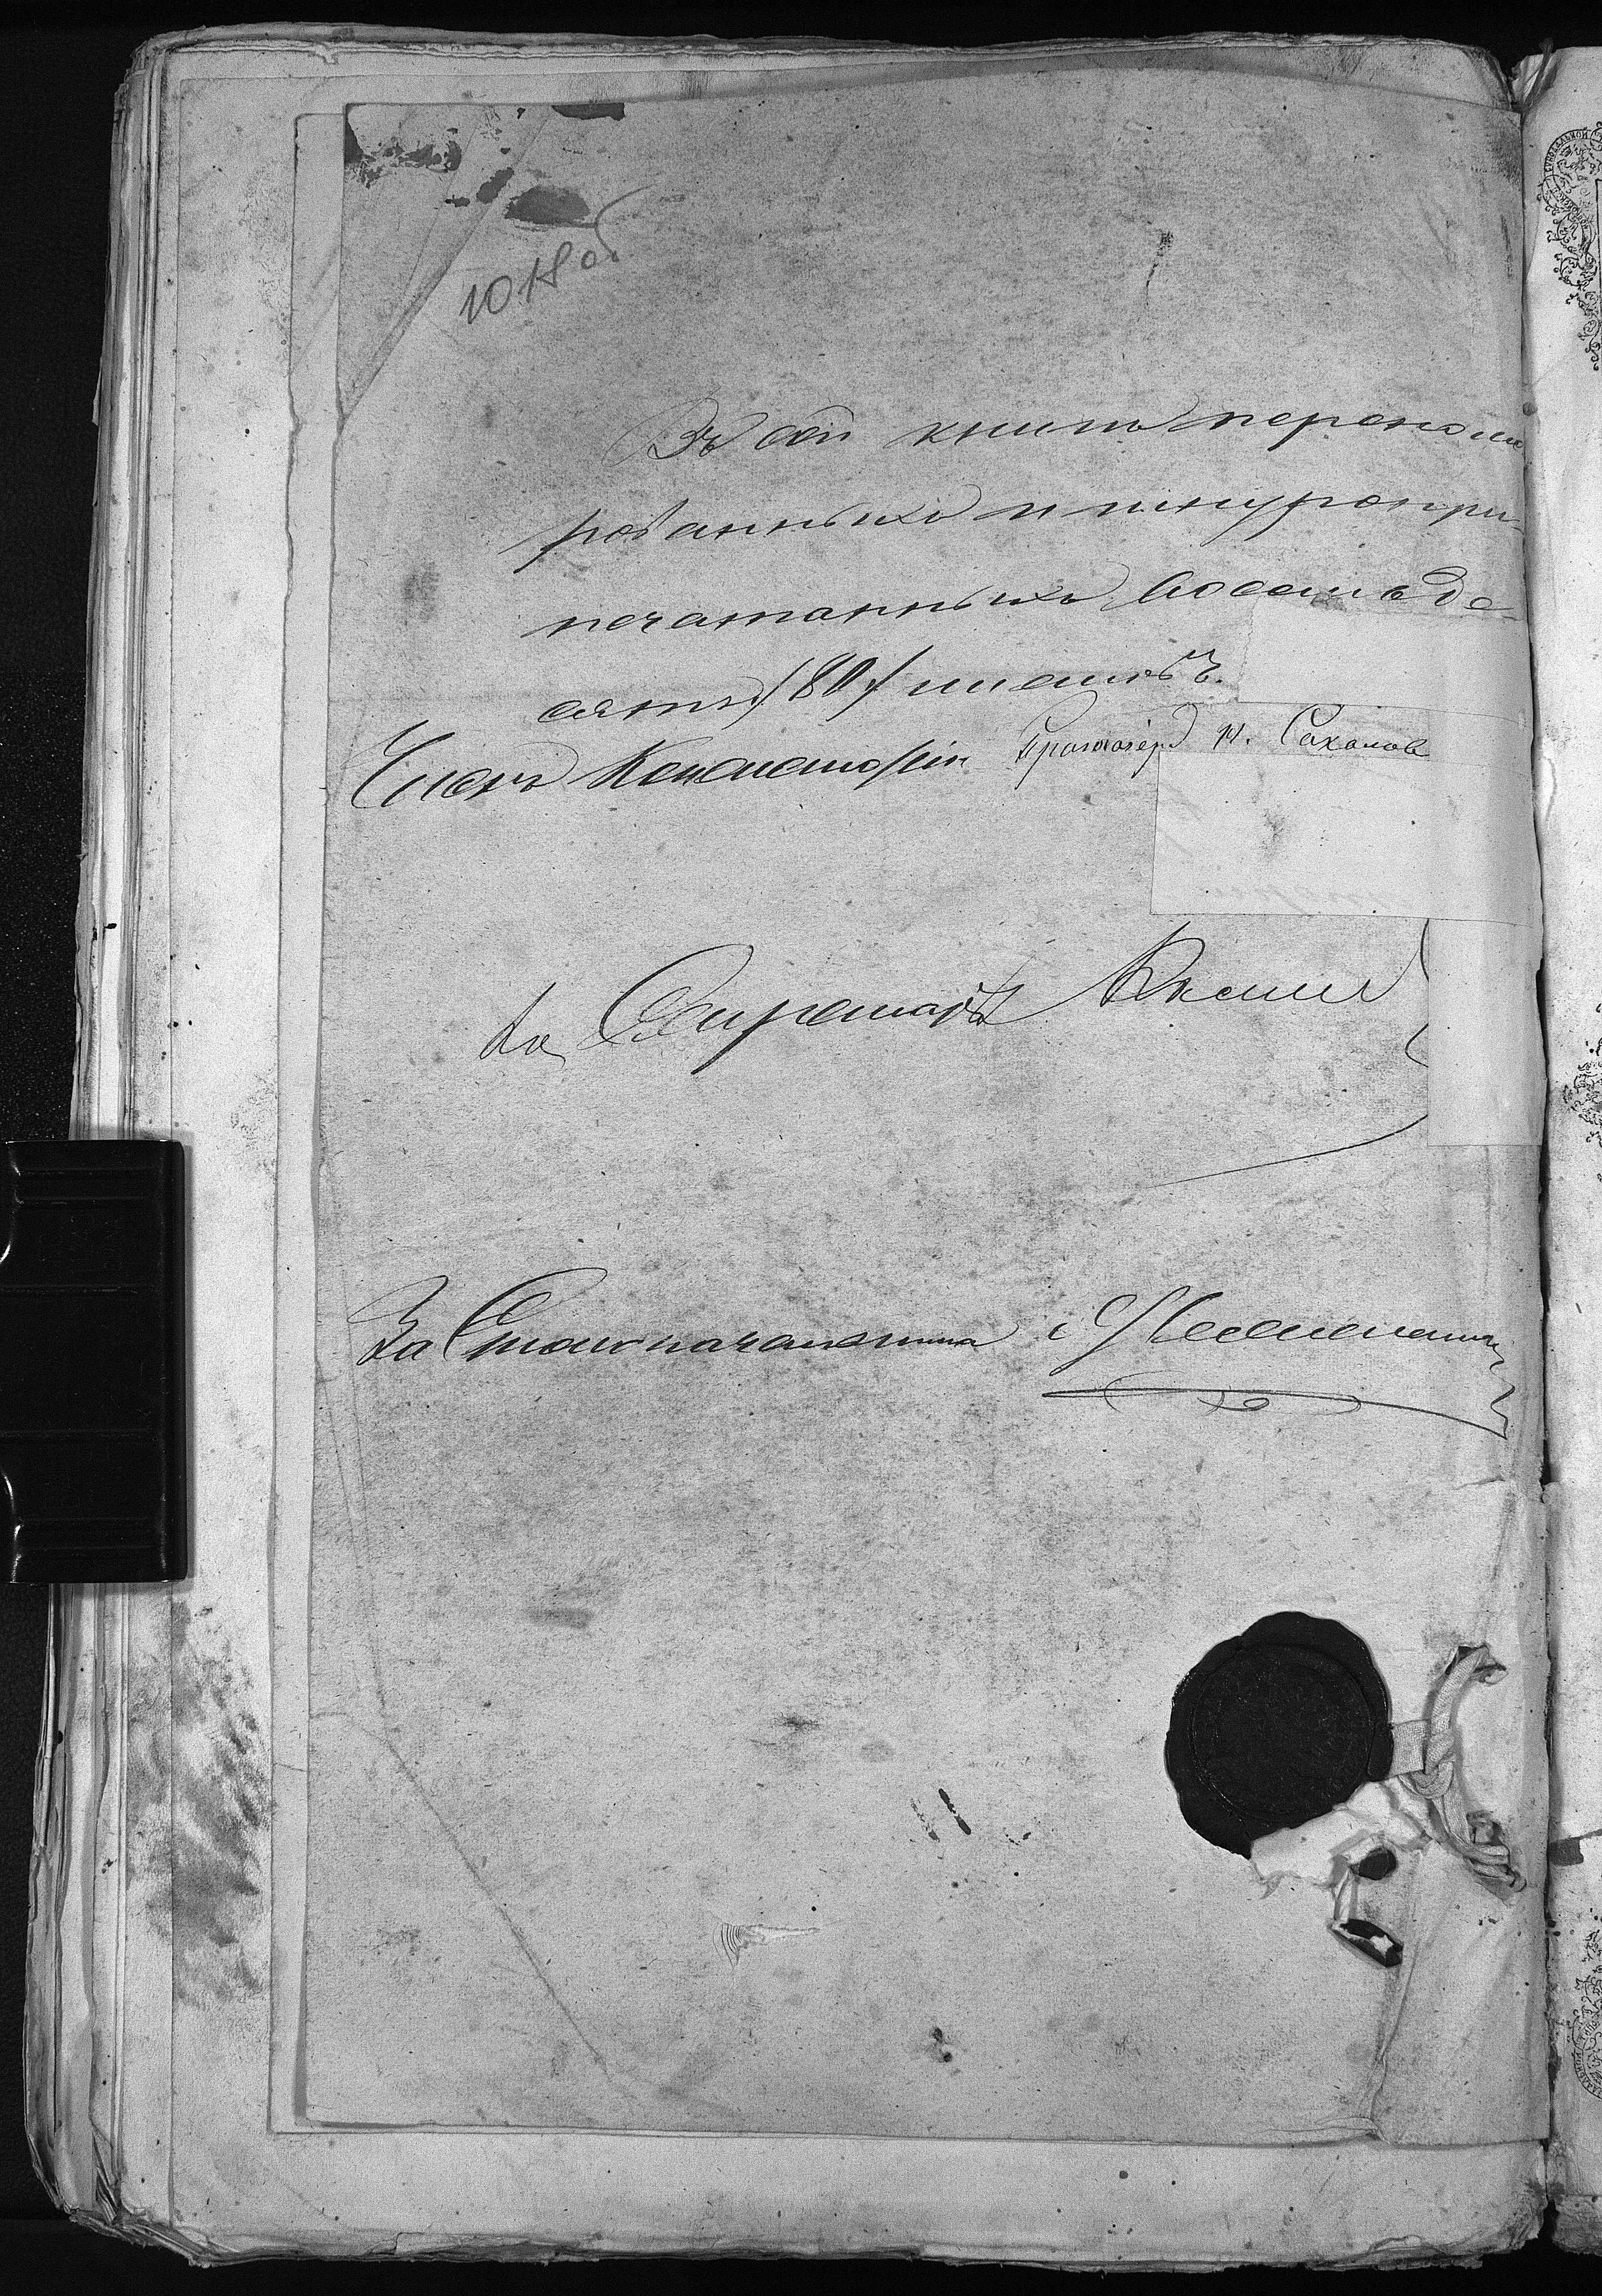 1018 об
Въ сей книгѣ перенуме
рованныхъ и шнуропри-
печатанныхъ восемьде-
сятъ /80/ листовъ.
Членъ Консисторіи Протоіер. Н. Сахаров
За Секретаря
За Столоначальника